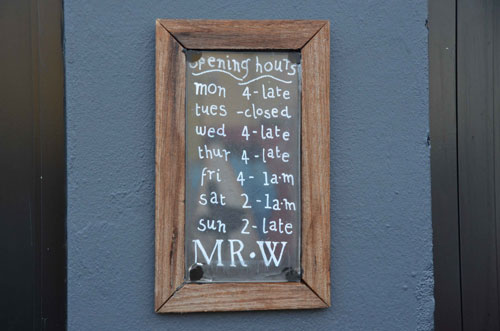 opening hours
mon 4-late
tues -closed
wed 4-late
thur 4-late
fri 4-1a.m
sat 2-1a.m
sun 2-late
MR·W